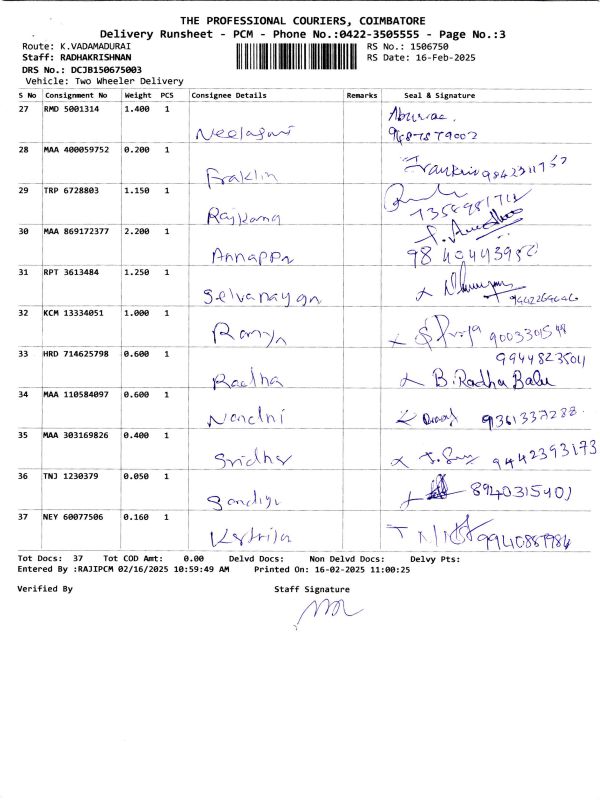 THE PROFESSIONAL COURIERS, COIMBATORE
Delivery Runsheet - PCM - Phone No.:0422-3505555 - Page No.:3
Route: K.VADAMADURAI RS No.: 1506750
Staff: RADHAKRISHNAN RS Date: 16-Feb-2025
DRS No.: DCJB150675003
Vehicle: Two Wheeler Delivery
S No Consignment No Weight PCS Consignee Details Remarks Seal & Signature
27 RMD 5001314 1.400 1
Neelaguni
28 MAA 400059752 0.200 1
Fraklin
29 TRP 6728803 1.150 1
30 MAA 869172377 2.200 1
Annappa 9840443950
31 RPT 3613484 1.250 1
Selvanayan
32 KCM 13334051 1.000 1
Ramya
33 HRD 714625798 0.600 1 9944823504
Radha B. Radha Balu
34 MAA 110584097 0.600 1
Nandni 9361337288
35 MAA 303169826 0.400 1
Sridhar 9442393173
36 TNJ 1230379 0.050 1
8940315401
37 NEY 60077506 0.160 1
9940887984
Tot Docs: 37 Tot COD Amt: 0.00 Delvd Docs: Non Delvd Docs: Delvy Pts:
Entered By :RAJIPCM 02/16/2025 10:59:49 AM Printed On: 16-02-2025 11:00:25
Verified By Staff Signature